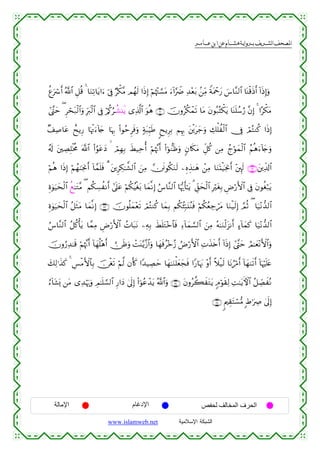 المصحف الشريف برواية هشام عن ابن عامر
وَإِذَآ أَذَقْنَا ٱلنَّاسَ رَحْمَةً مِّنۢ بَعْدِ ضَرَّآءَ مَسَّتْهُمْ إِذَا لَهُم مَّكْرٌ فِىٓ ءَايَاتِنَا ۚ قُلِ ٱللَّهُ أَسْرَعُ
مَكْرًا ۚ إِنَّ رُسُلَنَا يَكْتُبُونَ مَا تَمْكُرُونَ ۝ هُوَ ٱلَّذِى يَنشُرُكُمْ فِى ٱلْبَرِّ وَٱلْبَحْرِ ۖ حَتَّىٰٓ
إِذَا كُنتُمْ فِى ٱلْفُلْكِ وَجَرَيْنَ بِهِم بِرِيحٍ طَيِّبَةٍ وَفَرِحُوا۟ بِهَا جَآءَتْهَا رِيحٌ عَاصِفٌ
وَجَآءَهُمُ ٱلْمَوْجُ مِن كُلِّ مَكَانٍ وَظَنُّوٓا۟ أَنَّهُمْ أُحِيطَ بِهِمْ ۙ دَعَوُا۟ ٱللَّهَ مُخْلِصِينَ لَهُ
ٱلدِّينَ لَئِنْ أَنجَيْتَنَا مِنْ هَـٰذِهِۦ لَنَكُونَنَّ مِنَ ٱلشَّـٰكِرِينَ ۝ فَلَمَّآ أَنجَىٰهُمْ إِذَا هُمْ
يَبْغُونَ فِى ٱلْأَرْضِ بِغَيْرِ ٱلْحَقِّ ۗ يَـٰٓأَيُّهَا ٱلنَّاسُ إِنَّمَا بَغْيُكُمْ عَلَىٰٓ أَنفُسِكُم ۖ مَّتَـٰعُ ٱلْحَيَوٰةِ
ٱلدُّنْيَا ۖ ثُمَّ إِلَيْنَا مَرْجِعُكُمْ فَنُنَبِّئُكُم بِمَا كُنتُمْ تَعْمَلُونَ ۝ إِنَّمَا مَثَلُ ٱلْحَيَوٰةِ
ٱلدُّنْيَا كَمَآءٍ أَنزَلْنَـٰهُ مِنَ ٱلسَّمَآءِ فَٱخْتَلَطَ بِهِۦ نَبَاتُ ٱلْأَرْضِ مِمَّا يَأْكُلُ ٱلنَّاسُ
وَٱلْأَنْعَـٰمُ حَتَّىٰٓ إِذَآ أَخَذَتِ ٱلْأَرْضُ زُخْرُفَهَا وَٱزَّيَّنَتْ وَظَنَّ أَهْلُهَآ أَنَّهُمْ قَـٰدِرُونَ
عَلَيْهَآ أَتَىٰهَآ أَمْرُنَا لَيْلًا أَوْ نَهَارًا فَجَعَلْنَـٰهَا حَصِيدًا كَأَن لَّمْ تَغْنَ بِٱلْأَمْسِ ۚ كَذَٰلِكَ
نُفَصِّلُ ٱلْـَٔايَـٰتِ لِقَوْمٍ يَتَفَكَّرُونَ ۝ وَٱللَّهُ يَدْعُوٓا۟ إِلَىٰ دَارِ ٱلسَّلَـٰمِ وَيَهْدِى مَن يَشَآءُ
إِلَىٰ صِرَٰطٍ مُّسْتَقِيمٍ ۝
الحرف المخالف لحفص الإدغام الإمالة
الشبكة الإسلامية www.islamweb.net